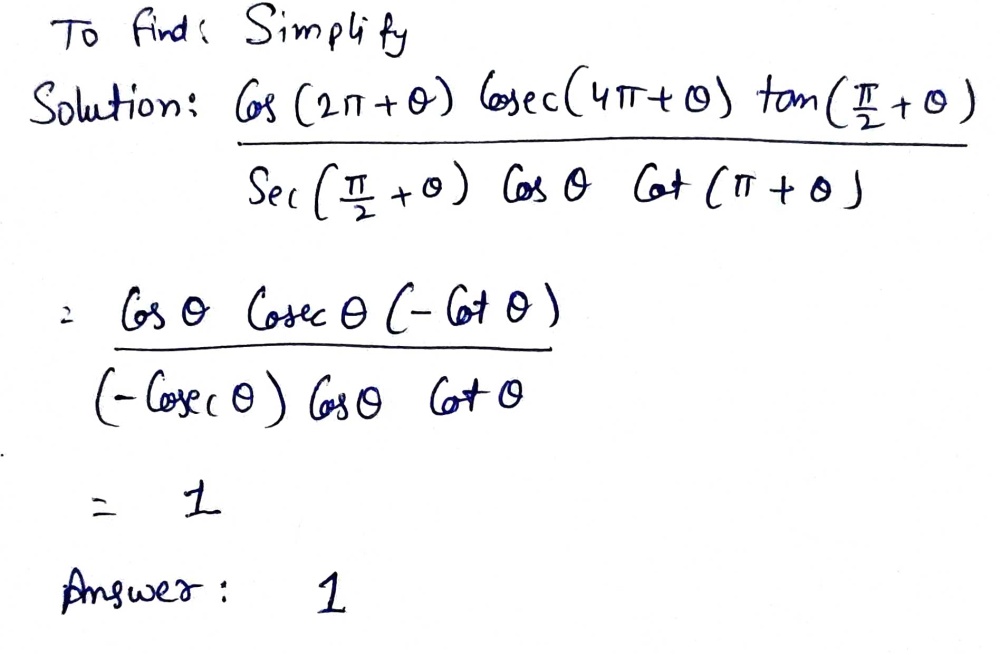 To find: Simplify
Solution: Cos (2π + θ) Cosec(4π + θ) tan(π/2 + θ)
Sec (π/2 + θ) Cos θ Cot (π + θ)
= Cos θ Cosec θ (- Cot θ)
(- Cosec θ) Cos θ Cot θ
= 1
Answer: 1